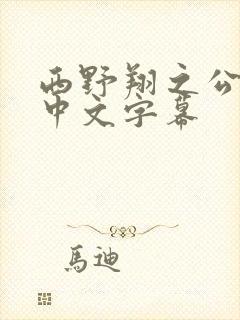 西野翔之公
中文字幕
馬迪